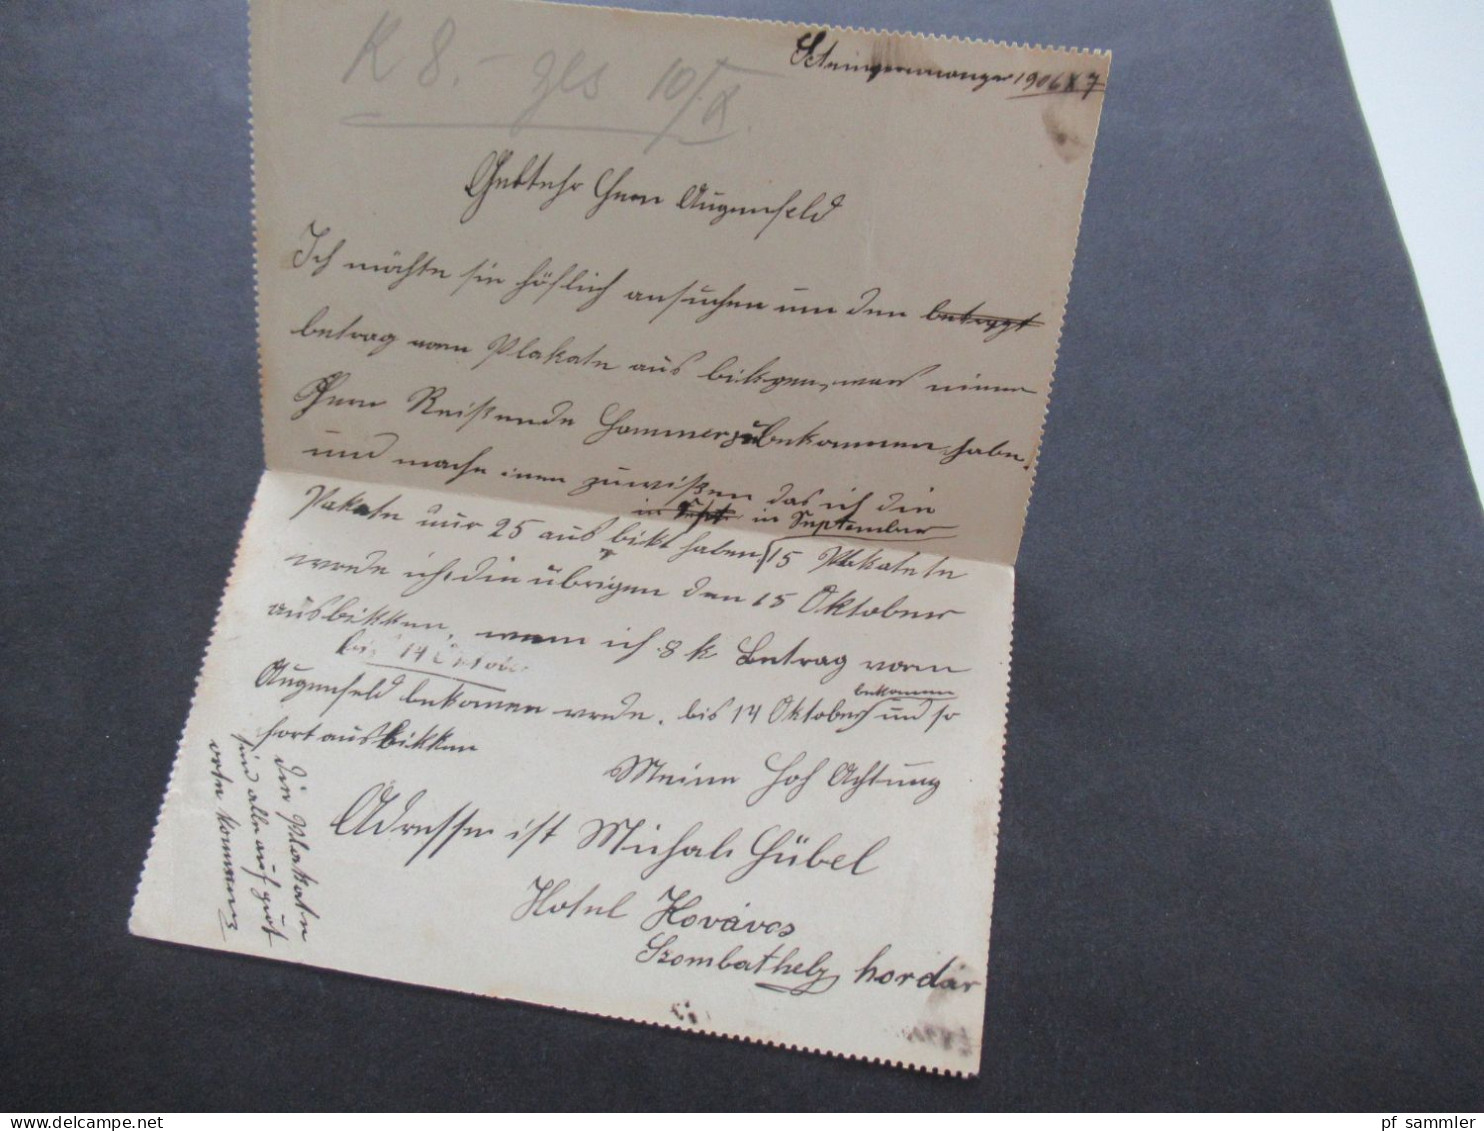 K 8.- ges 10/X
Steinamanger 1906 X 7
GeEhr Herr Augenfeld
Ich möchte sie höflich ansuchen um den betragt
betrag vom Plakate aus bikgen, was einen
Herrn Reißende Hammer zu bekommen habe,
und mache inen zuwißen das ich die
in Sept in September
Pakate nur 25 aus bikt haben 15 Plakate
werde ich die übrigen den 15 Oktober
ausbikken, wenn ich 8 k Betrag vom
bis 14 Oktober
Augenfeld bekomen werde. bis 14 Oktober bekomme und so
fort ausbikken
Meine Hoch Achtung
Adresse ist Michal Hübel
Hotel Kovács
Szombathely hordár
die Plakate
sind alle auf gut
orte kommen
pf sammler
www.delcampe.net